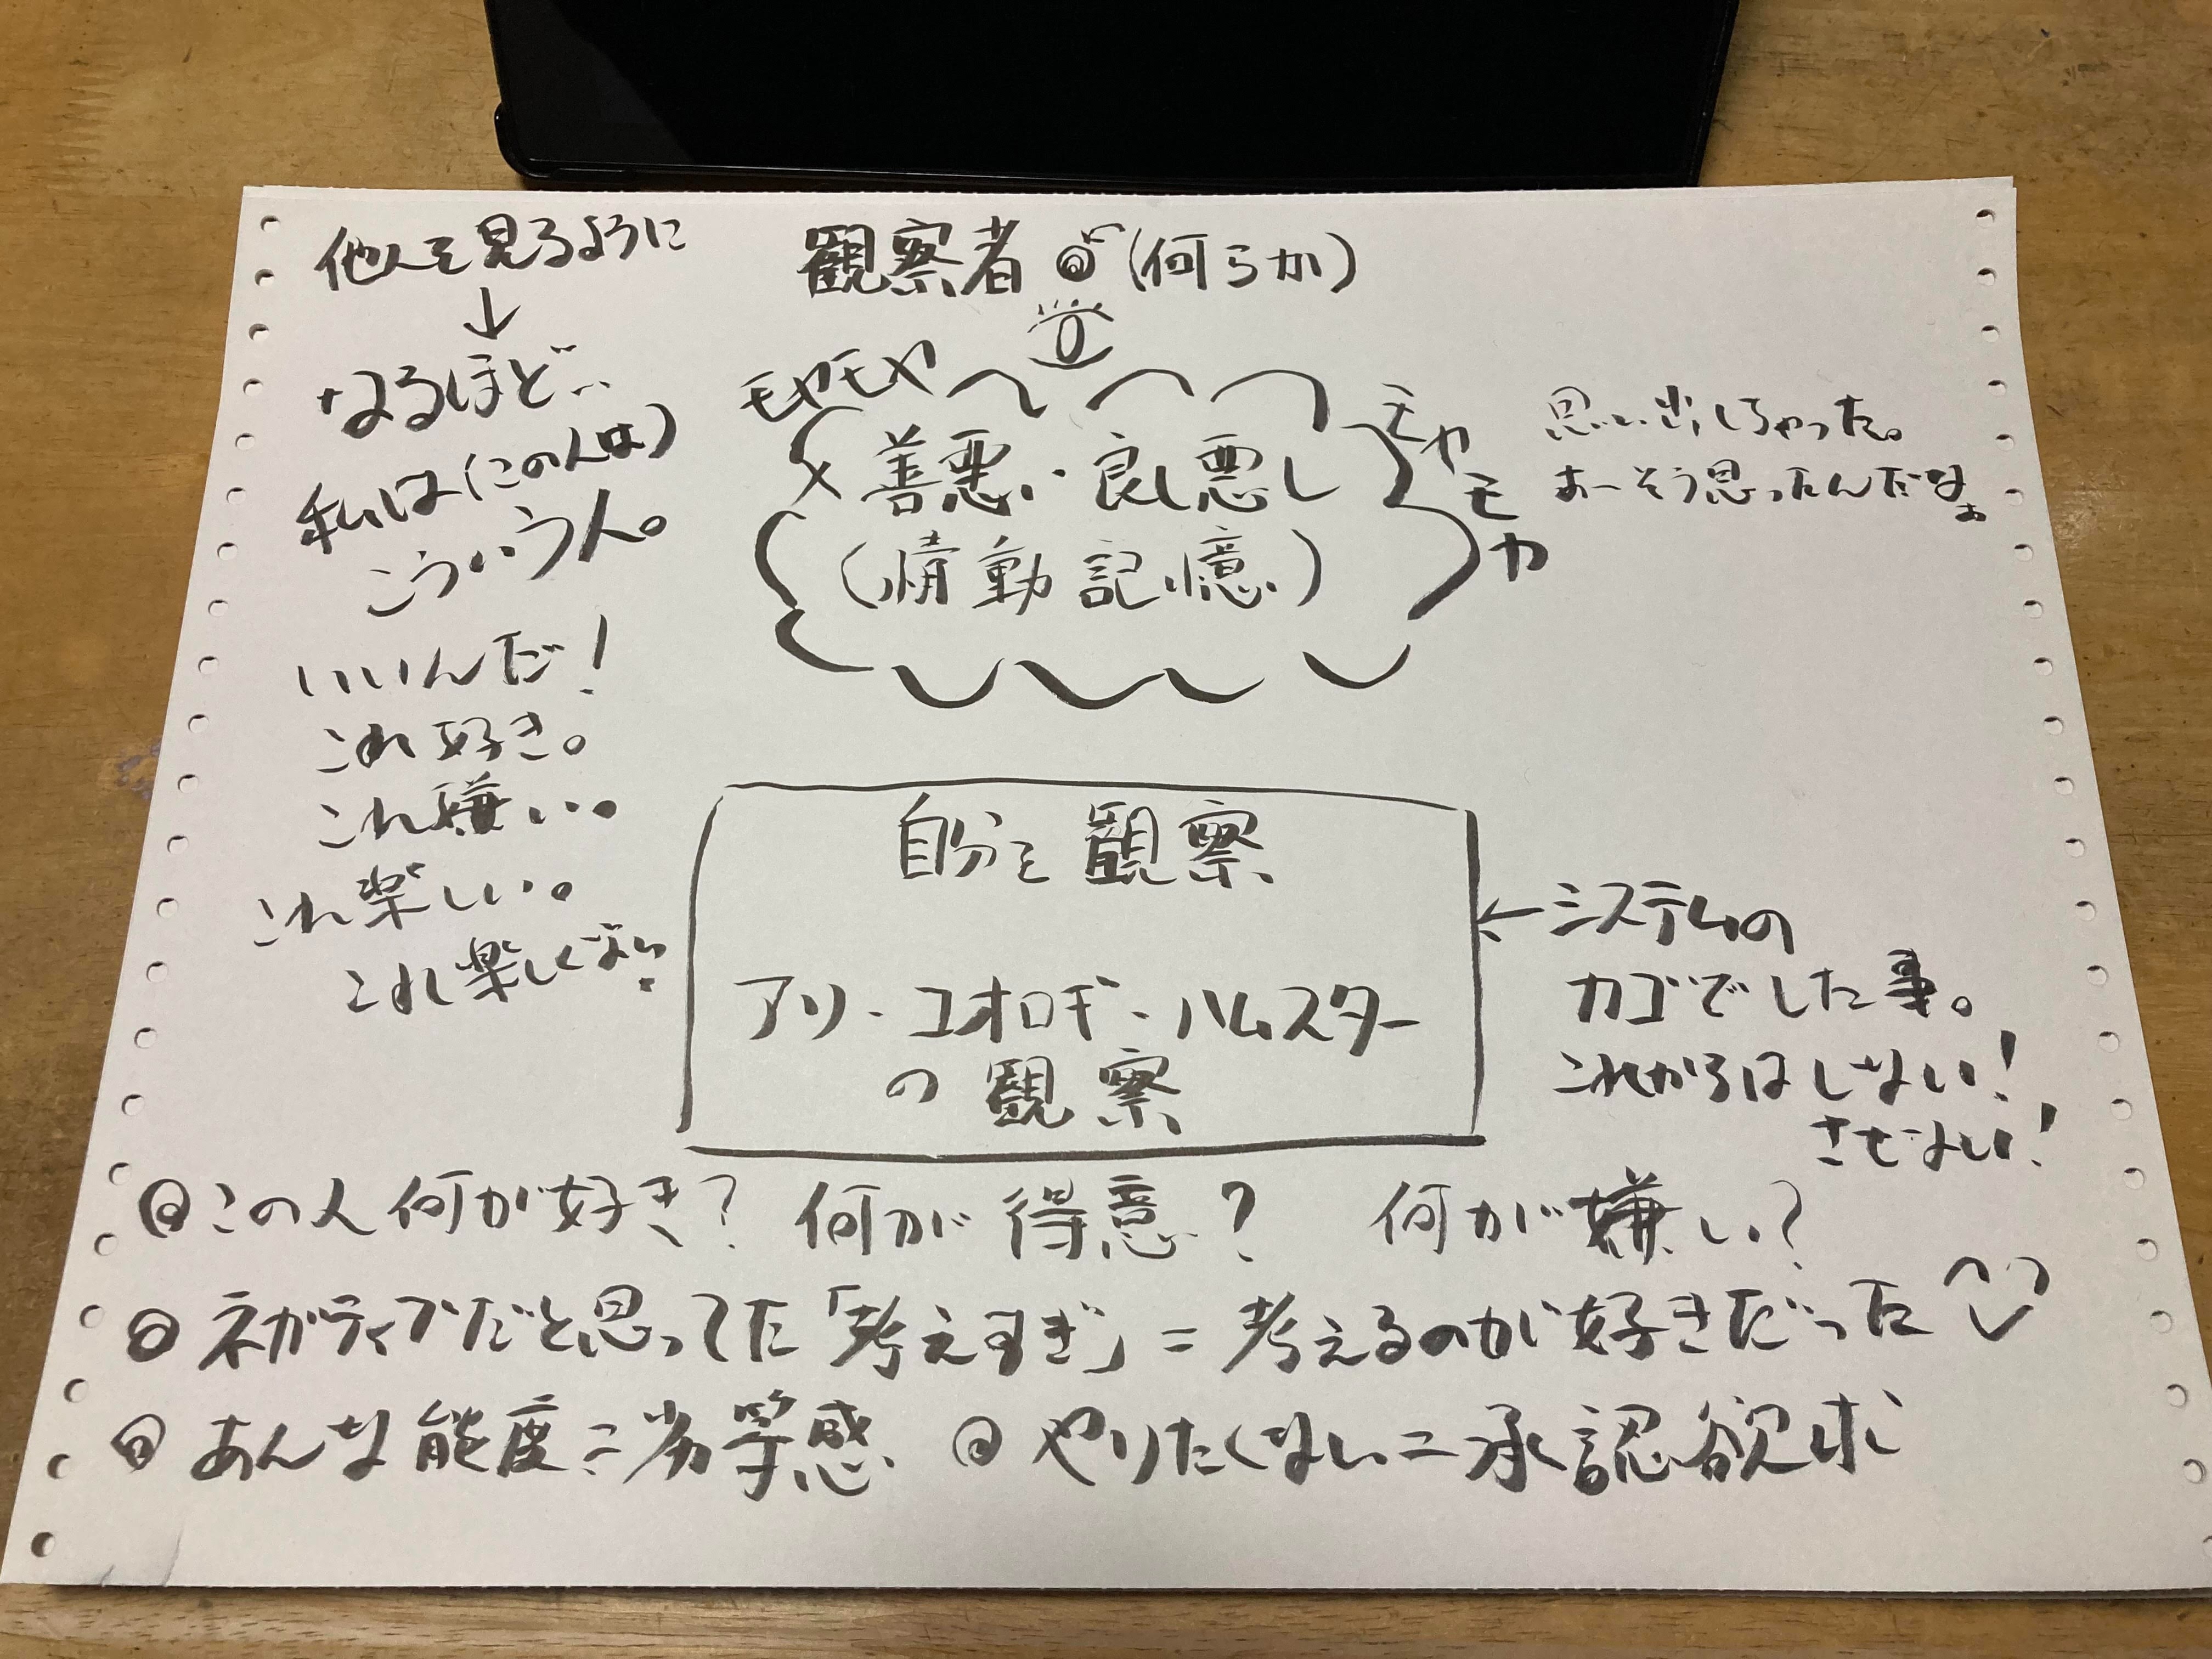 他人を見るように
↓
なるほど…
私は(この人は)
こういう人。
いいんだ!
これ好き。
これ嫌い。
これ楽しい。
これ楽しくない。
観察者 (何らか)
モヤモヤ
モヤモヤ
善悪・良し悪し
(情動記憶)
思い出しちゃった。
あーそう思ったんだなぁ
自分を観察
アリ・コオロギ・ハムスター
の観察
←システムの
カゴでした事。
これからはしない!
させない!
◎この人何が好き? 何が得意? 何が嫌い?
◎ネガティブだと思ってた「考えすぎ」=考えるのが好きだった
◎あんな態度=劣等感 ◎やりたくない=承認欲求